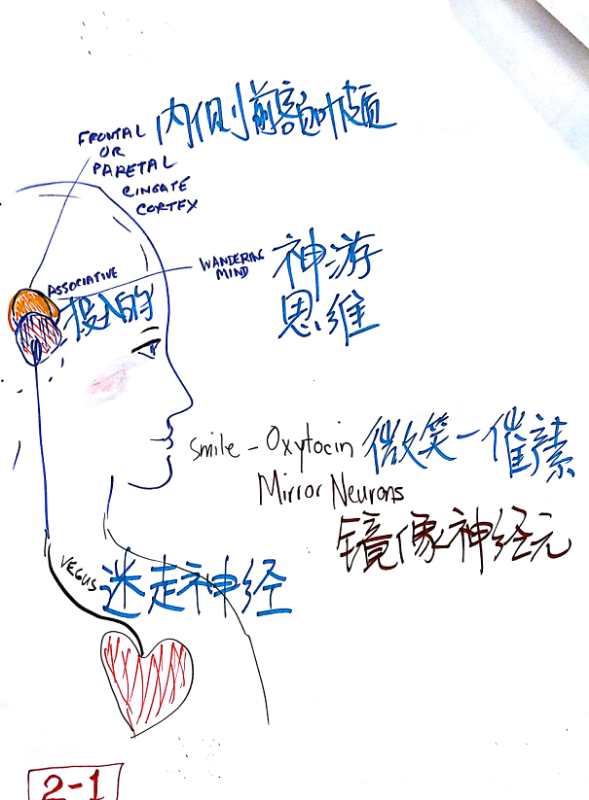 FRONTAL
OR
PARETAL
CINGATE
CORTEX
内侧前额叶皮质
ASSOCIATIVE
投入的
WANDERING
MIND
神游
思维
Smile - Oxytocin
微笑－催产素
Mirror Neurons
镜像神经元
VEGUS
迷走神经
2-1